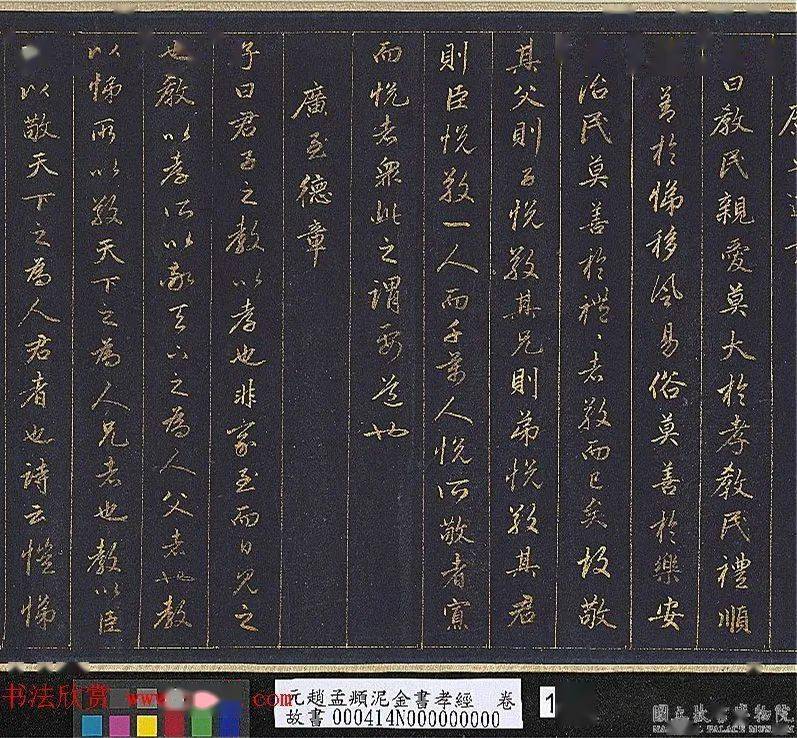 曰教民親愛莫大於孝教民禮順
善於悌移風易俗莫善於樂安
治民莫善於禮〻者敬而已矣故敬
其父則子悅敬其兄則弟悅敬其君
則臣悅敬一人而千萬人悅所敬者寡
而悅者眾此之謂要道也
廣至德章
子曰君子之教以孝也非家至而日見之
也教以孝所以敬天下之為人父者也教
以悌所以敬天下之為人兄者也教以臣
以敬天下之為人君者也詩云愷悌
书法欣赏 www. com
元趙孟頫泥金書孝經 卷
故書000414N000000000
1
國立故宮博物院
NATIONAL PALACE MUSEUM